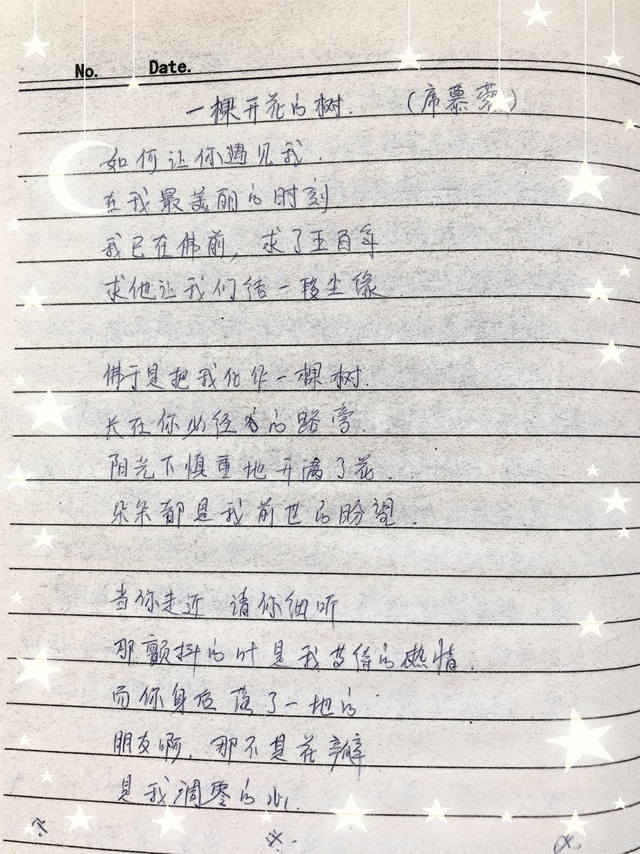 No. Date.
一棵开花的树. (席慕蓉)
如何让你遇见我.
在我最美丽的时刻
我已在佛前, 求了五百年
求他让我们结一段尘缘.
佛于是把我化作一棵树.
长在你必经的路旁.
阳光下慎重地开满了花.
朵朵都是我前世的盼望.
当你走近 请你细听
那颤抖的叶是我等待的热情.
而你身后落了一地的
朋友啊, 那不是花瓣
是我凋零的心.